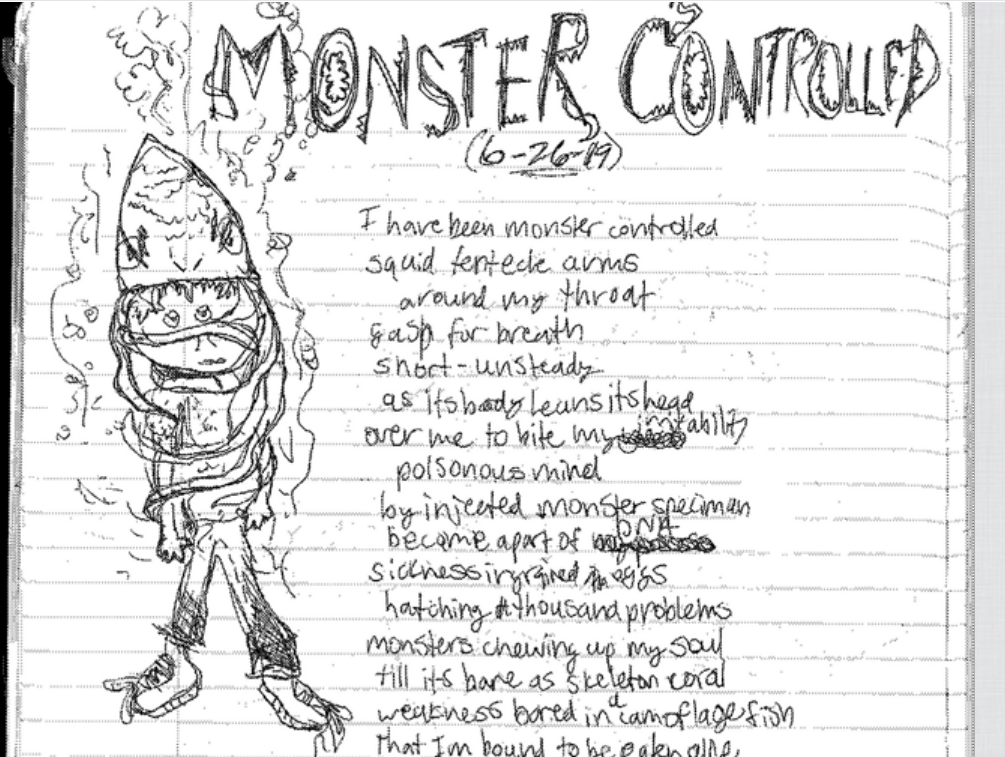 MONSTER CONTROLLED
(6-26-19)
I have been monster controlled
squid tentecle arms
around my throat
gasp for breath
short-unsteady
as its body leans its head
over me to bite my imtability
poisonous mind
by injected monster speciman
become apart of DNA
sickness ingrained in eggs
hatching A thousand problems
monsters chewing up my soul
till its bare as skeleton coral
weakness bored in a camoflage fish
that Im bound to be eaten alive,